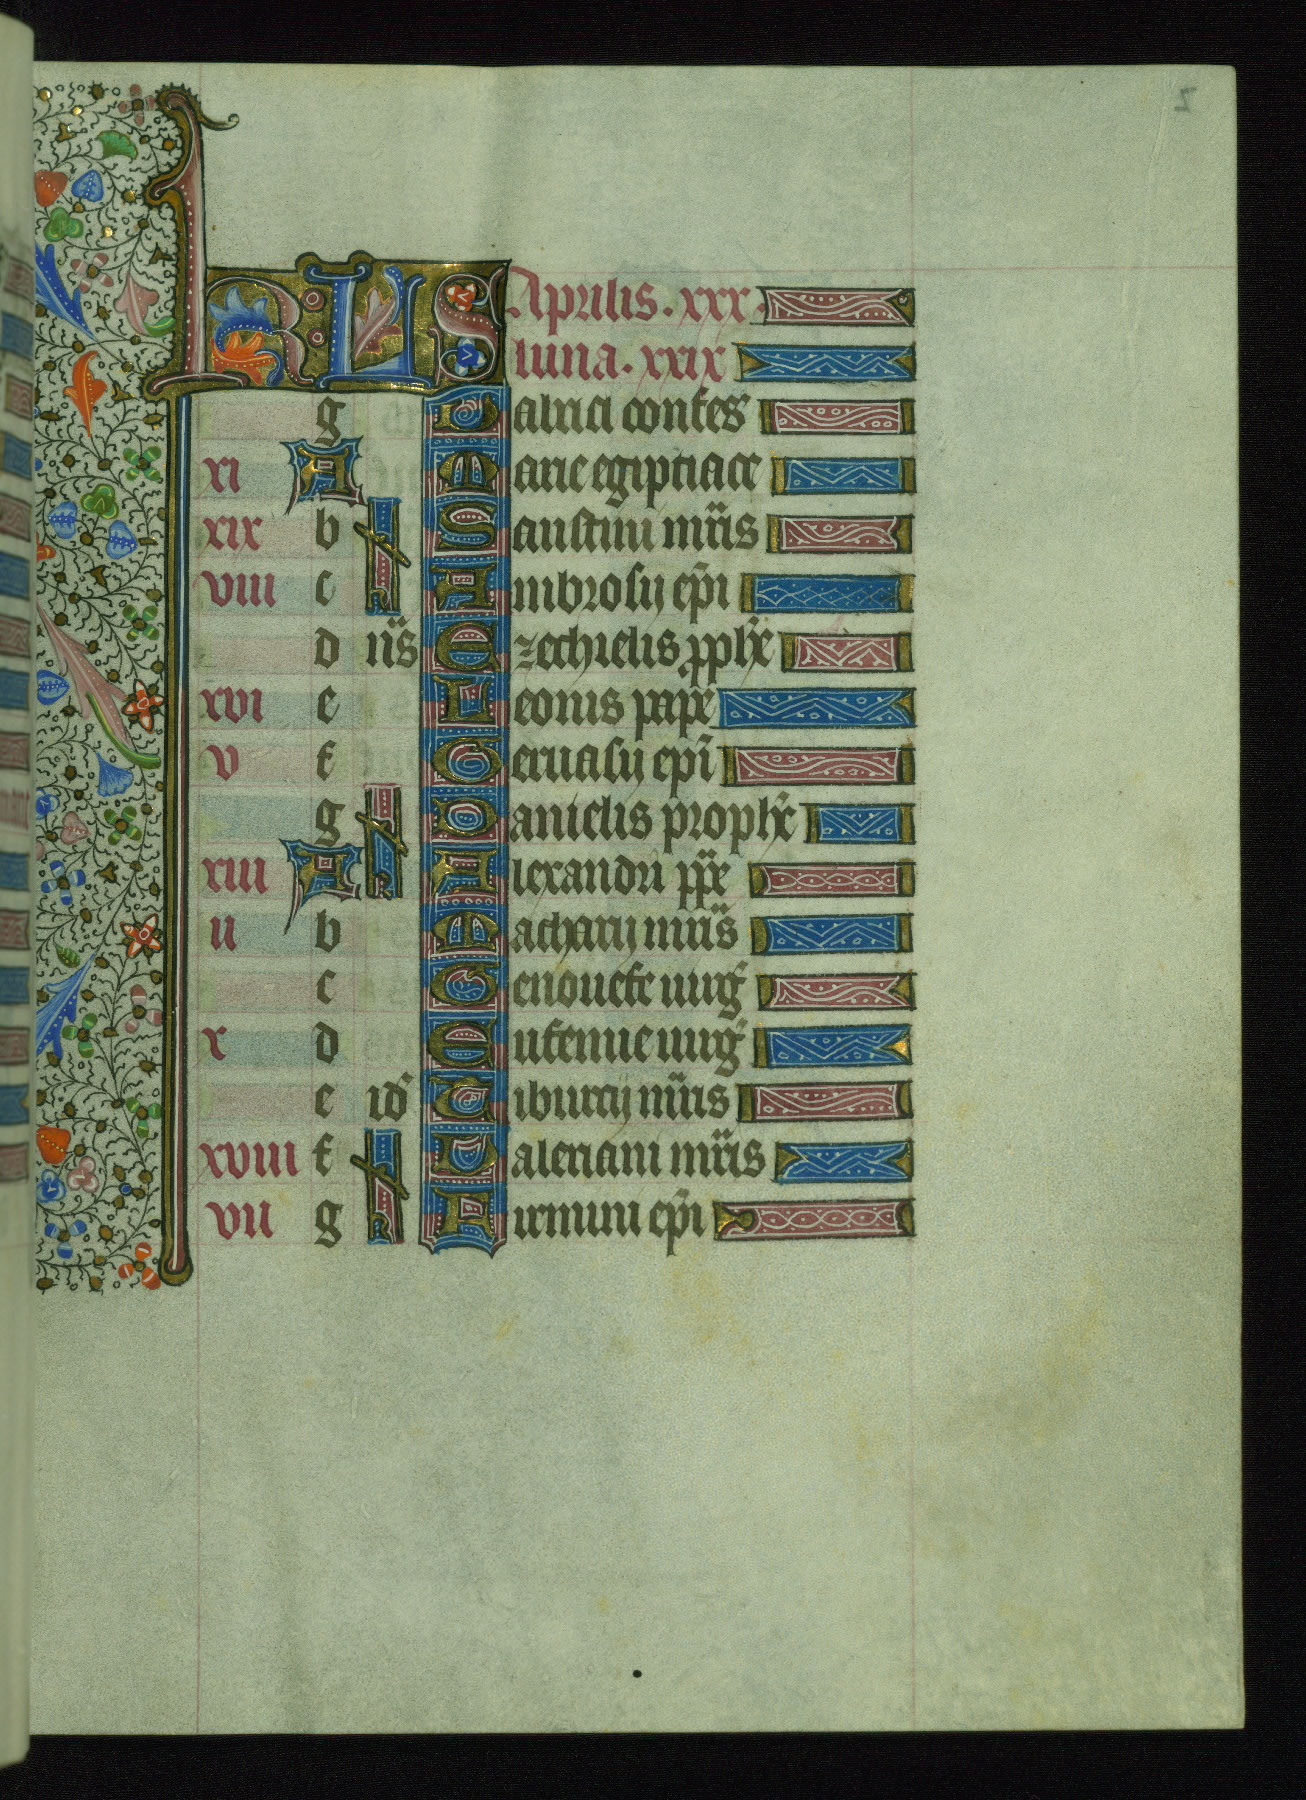 2
KL Aprilis. xxx.
luna. xxix
g Valrici confes
xi A Marie egiptiace
xix b N Saustini mr̄is
viii c N Ambrosij ep̄i
d nr̄s Ezechielis pphe
xvi e Leonis pape
v f Geruasij ep̄i
g N Danielis prophe
xiii A N Alexandri ppe
ii b Macharij mr̄is
c Genouefe uirg
x d Eufemie uirg
e id Tiburcij mr̄is
xviii f N Valeriani mr̄is
vii g N Firmini ep̄i